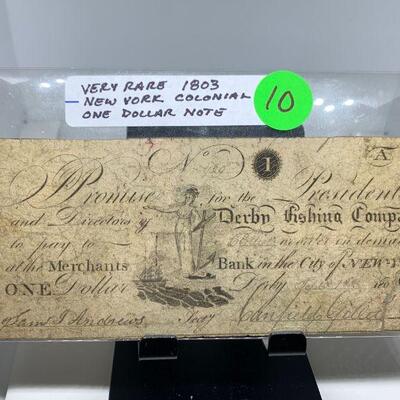 VERY RARE 1803
NEW YORK COLONIAL
ONE DOLLAR NOTE
10
No
1
A
I Promise for the President
and Directors of Derby Fishing Compa
to pay to or order on demand
at the Merchants Bank in the City of NEW-Y
ONE Dollar Derby 180
Sam I Andrews Secy Canfield Gillet